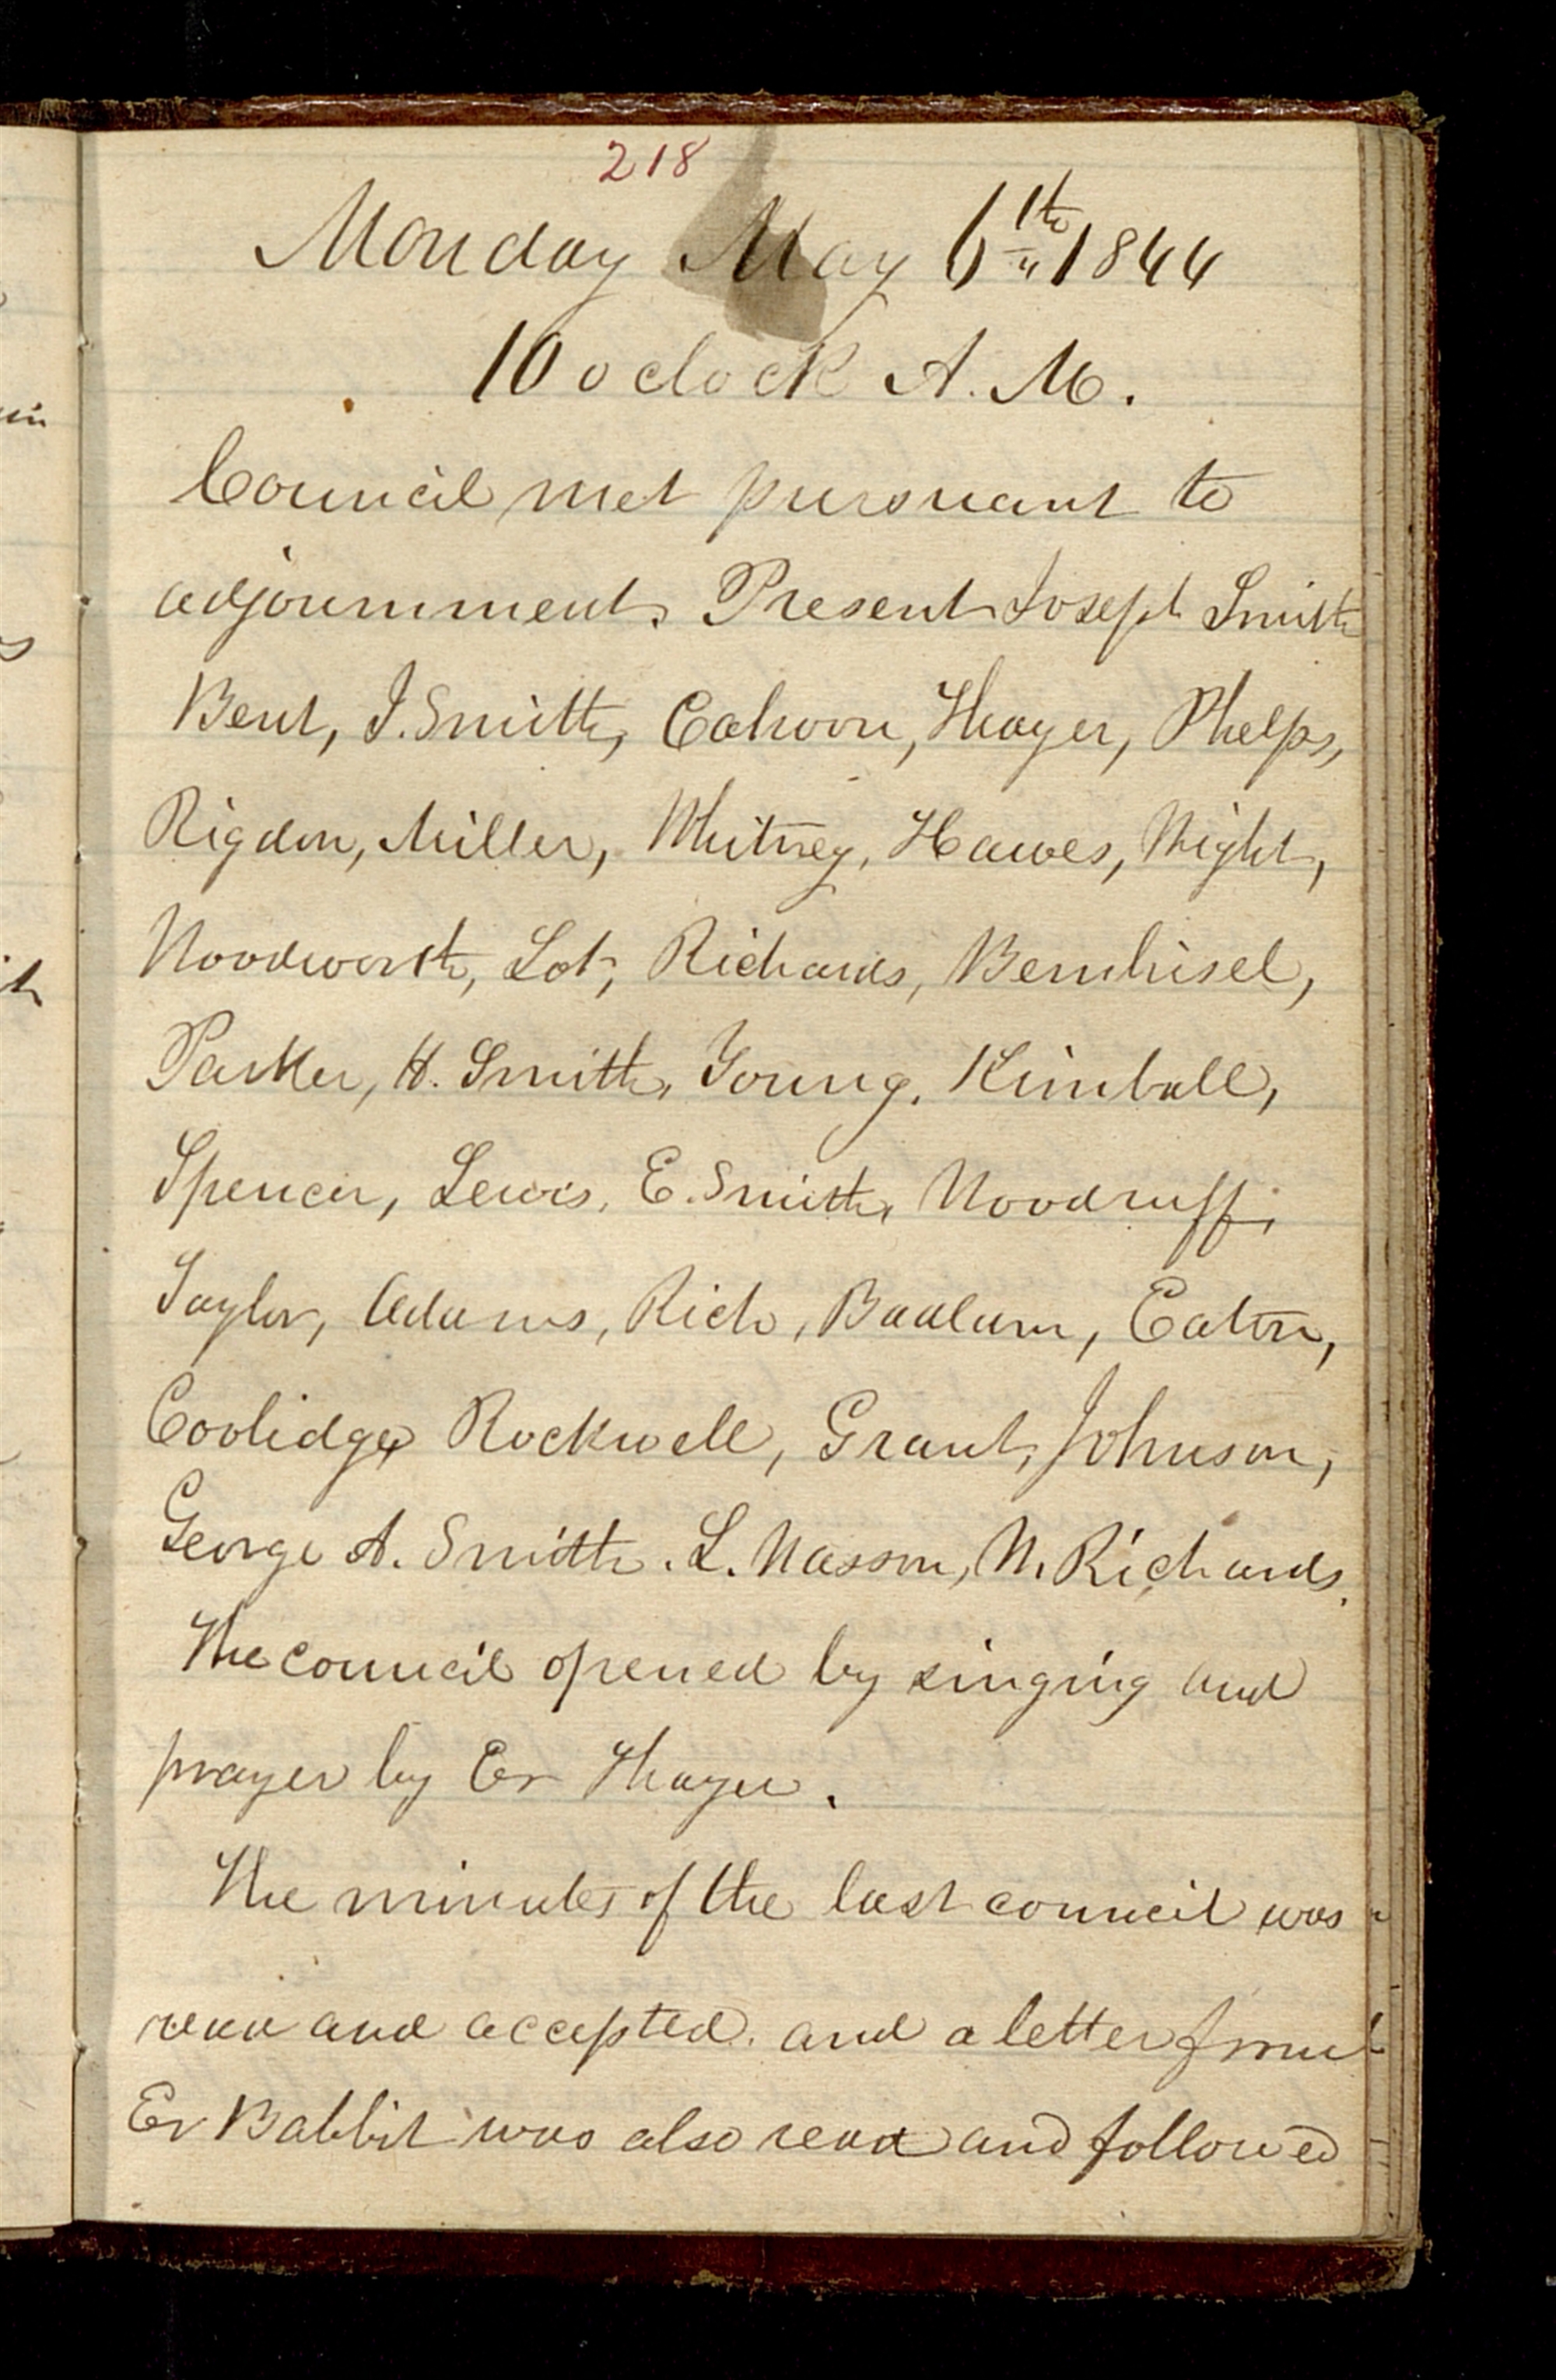 218
Monday May 6th 1844
10 oclock A. M.
Council met pursuant to
adjournment. Present Joseph Smith
Bent, J. Smith, Cahoon, Thayer, Phelps,
Rigdon, Miller, Whitney, Hawes, Wight,
Woodworth, Lot, Richards, Bernhisel,
Parker, H. Smith, Young, Kimball,
Spencer, Lewis, E. Smith, Woodruff,
Taylor, Adams, Rich, Badlam, Eaton,
Coolidge, Rockwell, Grant, Johnson,
George A. Smith. L. Wasson, W. Richards.
The council opened by singing and
prayer by Er Thayer.
The minutes of the last council was
read and accepted. and a letter from
Er Babbit was also read and followed